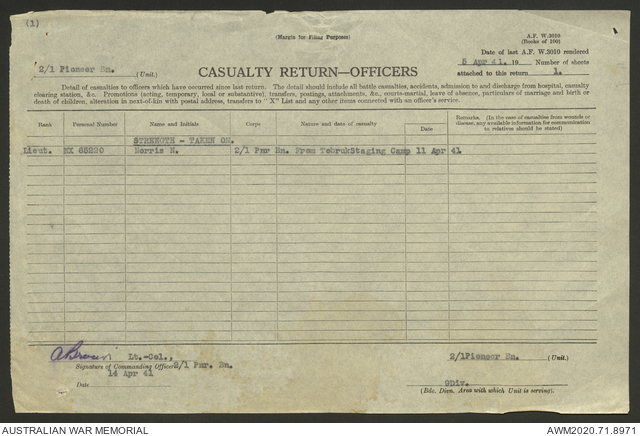 (1)
(Margin for Filing Purposes)
A.F. W.3010
(Books of 100)
Date of last A.F. W.3010 rendered
5 Apr 41. 19 Number of sheets
attached to this return 1.
2/1 Pioneer Bn. (Unit.)
CASUALTY RETURN—OFFICERS
Detail of casualties to officers which have occurred since last return. The detail should include all battle casualties, accidents, admission to and discharge from hospital, casualty
clearing station, &c. Promotions (acting, temporary, local or substantive), transfers, postings, attachments, &c., courts-martial, leave of absence, particulars of marriage and birth or
death of children, alteration in next-of-kin with postal address, transfers to "X" List and any other items connected with an officer's service.
Rank Personal Number Name and Initials Corps Nature and date of casualty Date Remarks. (In the case of casualties from wounds or
disease, any available information for communication
to relatives should be stated)
STRENGTH - TAKEN ON.
Lieut. NX 65220 Norris N. 2/1 Pnr Bn. From TobrukStaging Camp 11 Apr 41
Lt.-Col.,
Signature of Commanding Officer 2/1 Pnr. Bn.
14 Apr 41
Date
2/1Pioneer Bn. (Unit.)
9Div.
(Bde. Divn. Area with which Unit is serving).
AUSTRALIAN WAR MEMORIAL AWM2020.71.8971